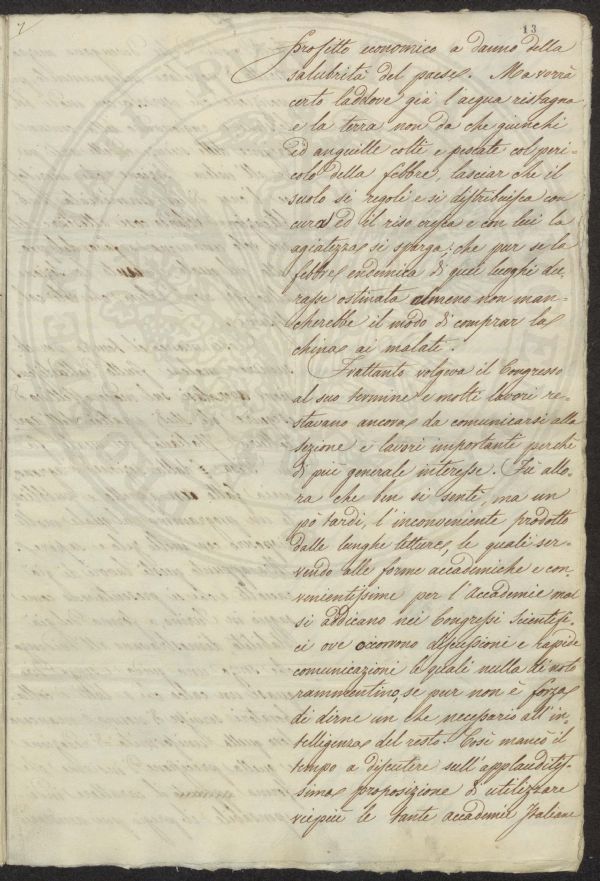 13
profitto economico a danno della
salubrità del paese. Ma vorrà
certo laddove già l'acqua ristagna
e la terra non dà che giunchi
ed anguille colte e pescate col peri-
colo della febbre, lasciar che il
suolo si regoli e si distribuisca con
cura ed il riso cresca e con lui la
agiatezza si sparga; che pur se la
febbre endemica di quei luoghi du-
rasse ostinata almeno non man-
cherebbe il modo di comprar la
china ai malati.
Frattanto volgeva il Congresso
al suo termine e molti lavori re-
stavano ancora da comunicarsi alla
sezione e lavori importanti perchè
di più generale interesse. Fu allo-
ra che ben si sentì, ma un
pò tardi, l'inconveniente prodotto
dalle lunghe letture, le quali ser-
vendo alle forme accademiche e con-
venientissime per l'Accademie mal
si addicano nei Congressi scientifi-
ci ove occorrono discussioni e rapide
comunicazioni le quali nulla di noto
rammentino, se pur non è forza
di dirne un che necessario all'in-
telligenza del resto. Così mancò il
tempo a discutere sull'applauditis-
sima proposizione di utilizzare
viepiù le tante accademie Italiane